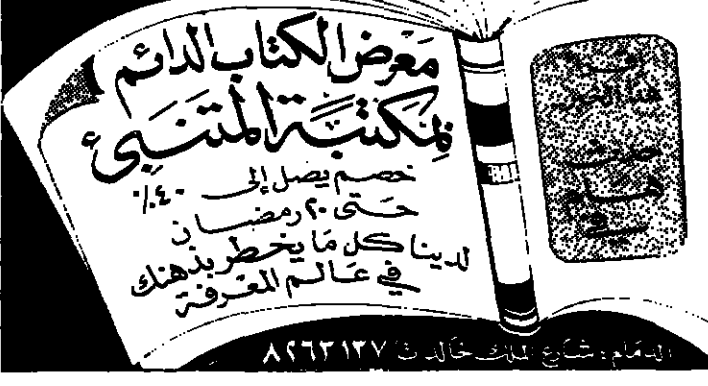 معرض الكتاب الدائم
لمكتبة المتنبي
خصم يصل إلى ٤٠٪
حتى ٢٠ رمضان
لدينا كل ما يخطر بذهنك
في عالم المعرفة
حدث
هام
في
الدمام : شارع الملك خالد ت ٨٢٦٣١٢٧